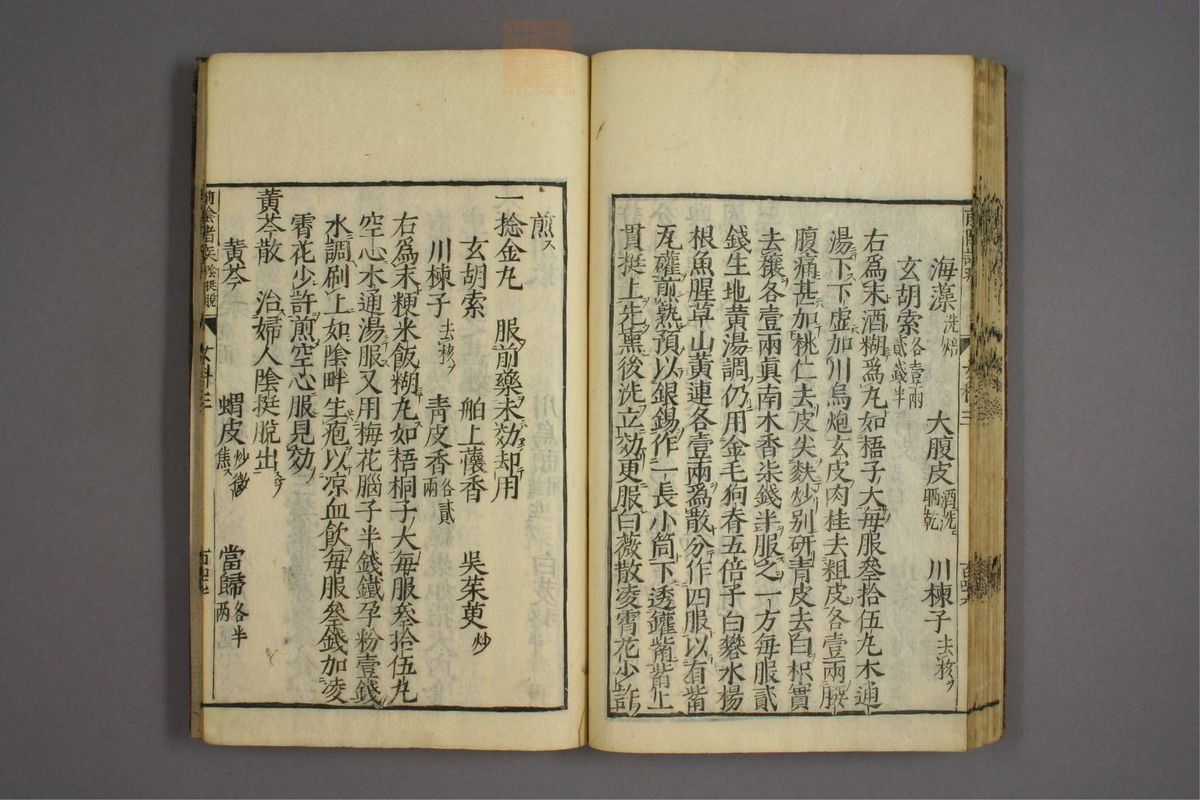 海藻洗焙 大腹皮酒洗晒乾 川楝子去核ヲ
玄胡索各壹兩貳錢半
右爲末酒糊爲丸如梧子大每服叄拾伍丸木通
湯下下虛加川烏炮玄皮肉桂去粗皮各壹兩腰
腹痛甚加桃仁去皮尖麩炒別研青皮去白枳實
去穰各壹兩眞南木香柒錢半服之一方每服貳
錢生地黃湯調仍用金毛狗脊五倍子白礬水楊
根魚腥草山黃連各壹兩爲散分作四服以有觜
瓦罐煎熟預以銀錫作一長小筒下透罐觜觜上
貫挺上先熏後洗立効更服白薇散凌霄花少許
煎ス
一捻金丸 服前藥未効却用
玄胡索 舶上懷香 吳茱萸炒
川楝子去核ヲ 青皮香各貳兩
右爲末粳米飯糊丸如梧桐子大每服叄拾伍丸
空心木通湯服又用梅花腦子半錢鐵孕粉壹錢
水調刷上如陰畔生疱以凉血飲每服叄錢加凌
霄花少許煎空心服見効
黃芩散 治婦人陰挺脫出
黃芩 蝟皮炒焦ス 當歸各半兩